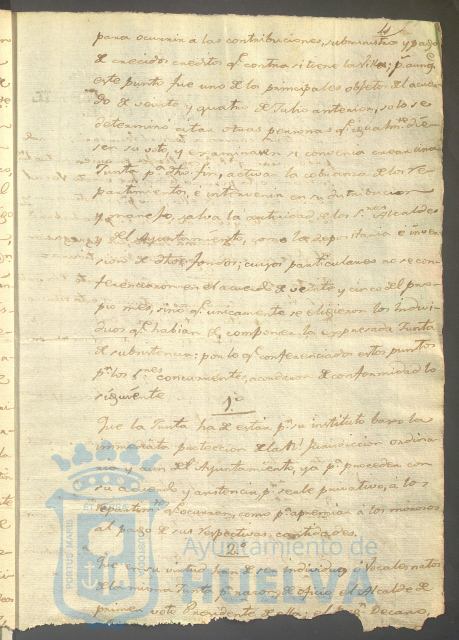 para ocurrir a las contribuciones, subministro y pago
de crecidos creditos qe. contra si tiene la Villa; pr. aunqe.
este punto fue uno de los principales objetos del acuer-
do de veinte y quatro de Julio anterior, solo se
determinó citar otras personas qe. igualmte. die-
sen su voto, y examinasen si convenia crear una
Junta pa. dho. fin, activar la cobranza de los re-
partimientos, é intervenir en su distribucion
y manejo, salva la autoridad de los Sres. Alcaldes
y del Ayuntamiento, como la depositaria é inver-
sion de dhos. fondos; cuyos particulares no se con-
ferenciaron en el acuerdo de veinte y cinco del pro-
pio mes, sino qe. unicamente se eligieron los Indivi-
duos qe. habian de componer la expresada Junta
de subsistencia: por lo qe. conferenciados estos puntos
pr. los Sres. concurrentes, acordaron de conformidad lo
siguiente
1.º
Que la Junta ha de estar pr. su instituto baxo la
inmediata proteccion de la Rl. Jurisdiccion ordina-
ria y aun del Ayuntamiento, ya pa. proceder con
su acuerdo y asistencia pr. serle privativo, á los
repartimtos. qe. ocurran, como pa. apremiar á los morosos
al pago de sus respectivas cantidades.
2.º
Que en su virtud han de ser Individuos ó Vocales natos
de la misma Junta pr. razon de oficio el Alcalde de
primer voto Presidente de ella; el Decano,
Ayuntamiento de
HUELVA
PORTUS MARIS